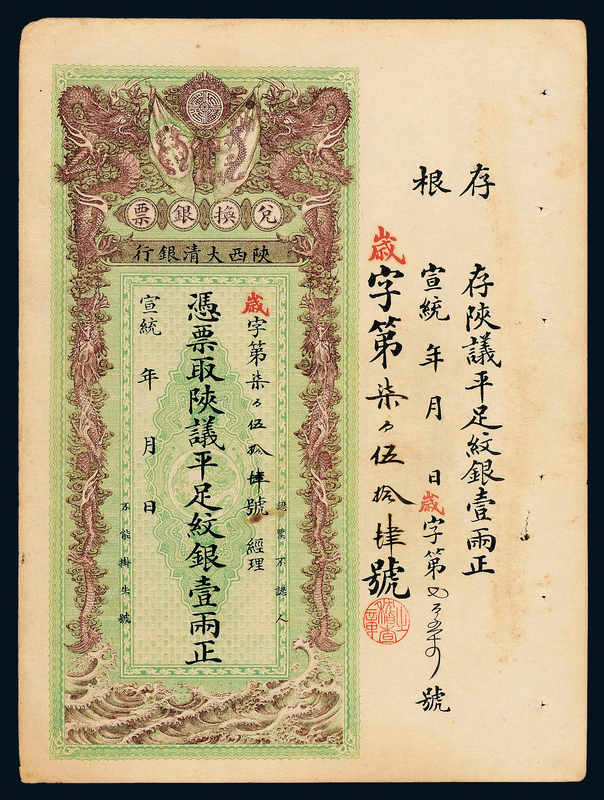 存根
存陝議平足紋銀壹兩正
宣統 年 月 日 歲字第七百五十四號
歲字第柒百伍拾肆號
兌換銀票
陝西大清銀行
認票不認人
歲字第柒百伍拾肆號 經理
憑票取陝議平足紋銀壹兩正
宣統 年 月 日
不能掛失號